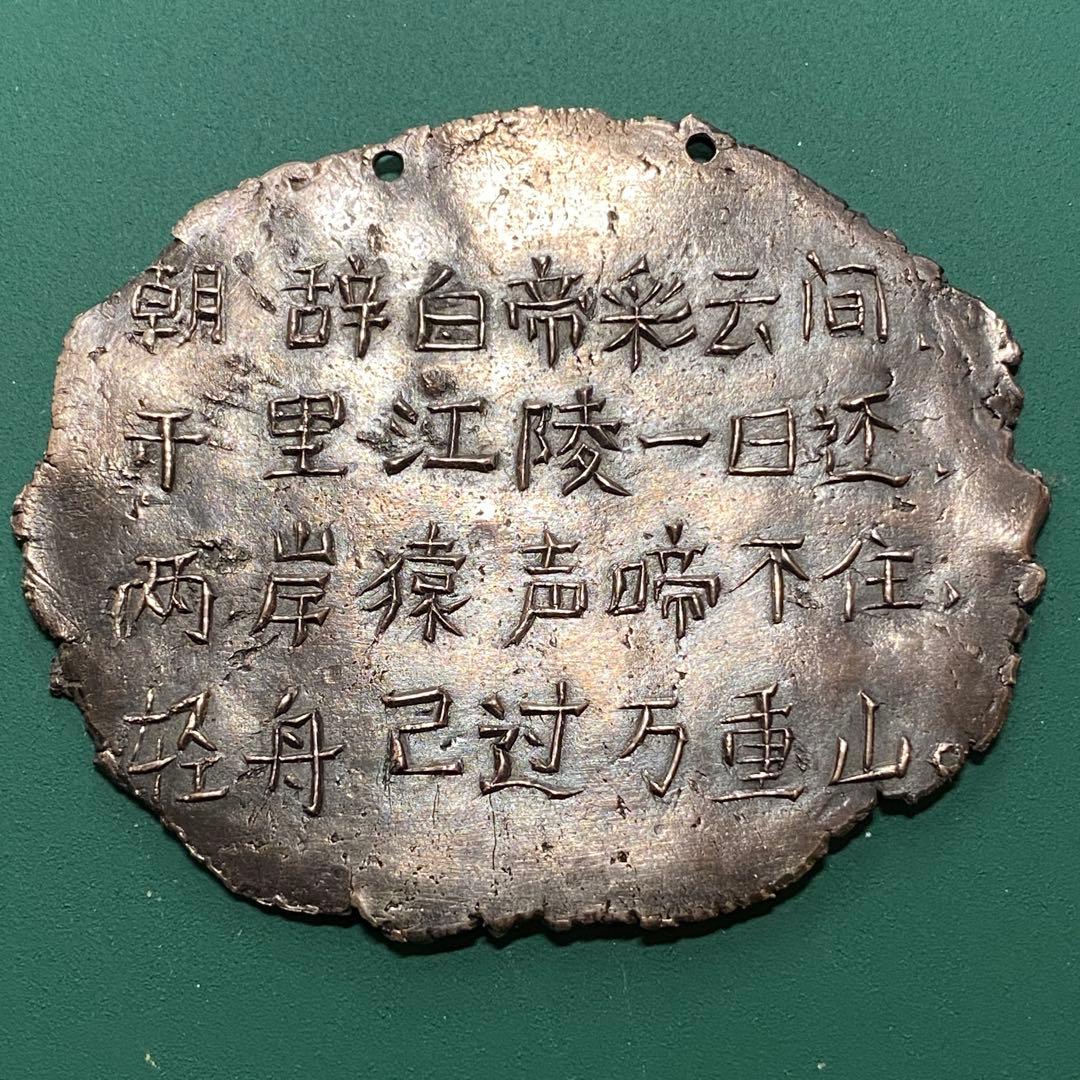 朝辞白帝彩云间、
千里江陵一日还、
两岸猿声啼不住、
轻舟已过万重山。